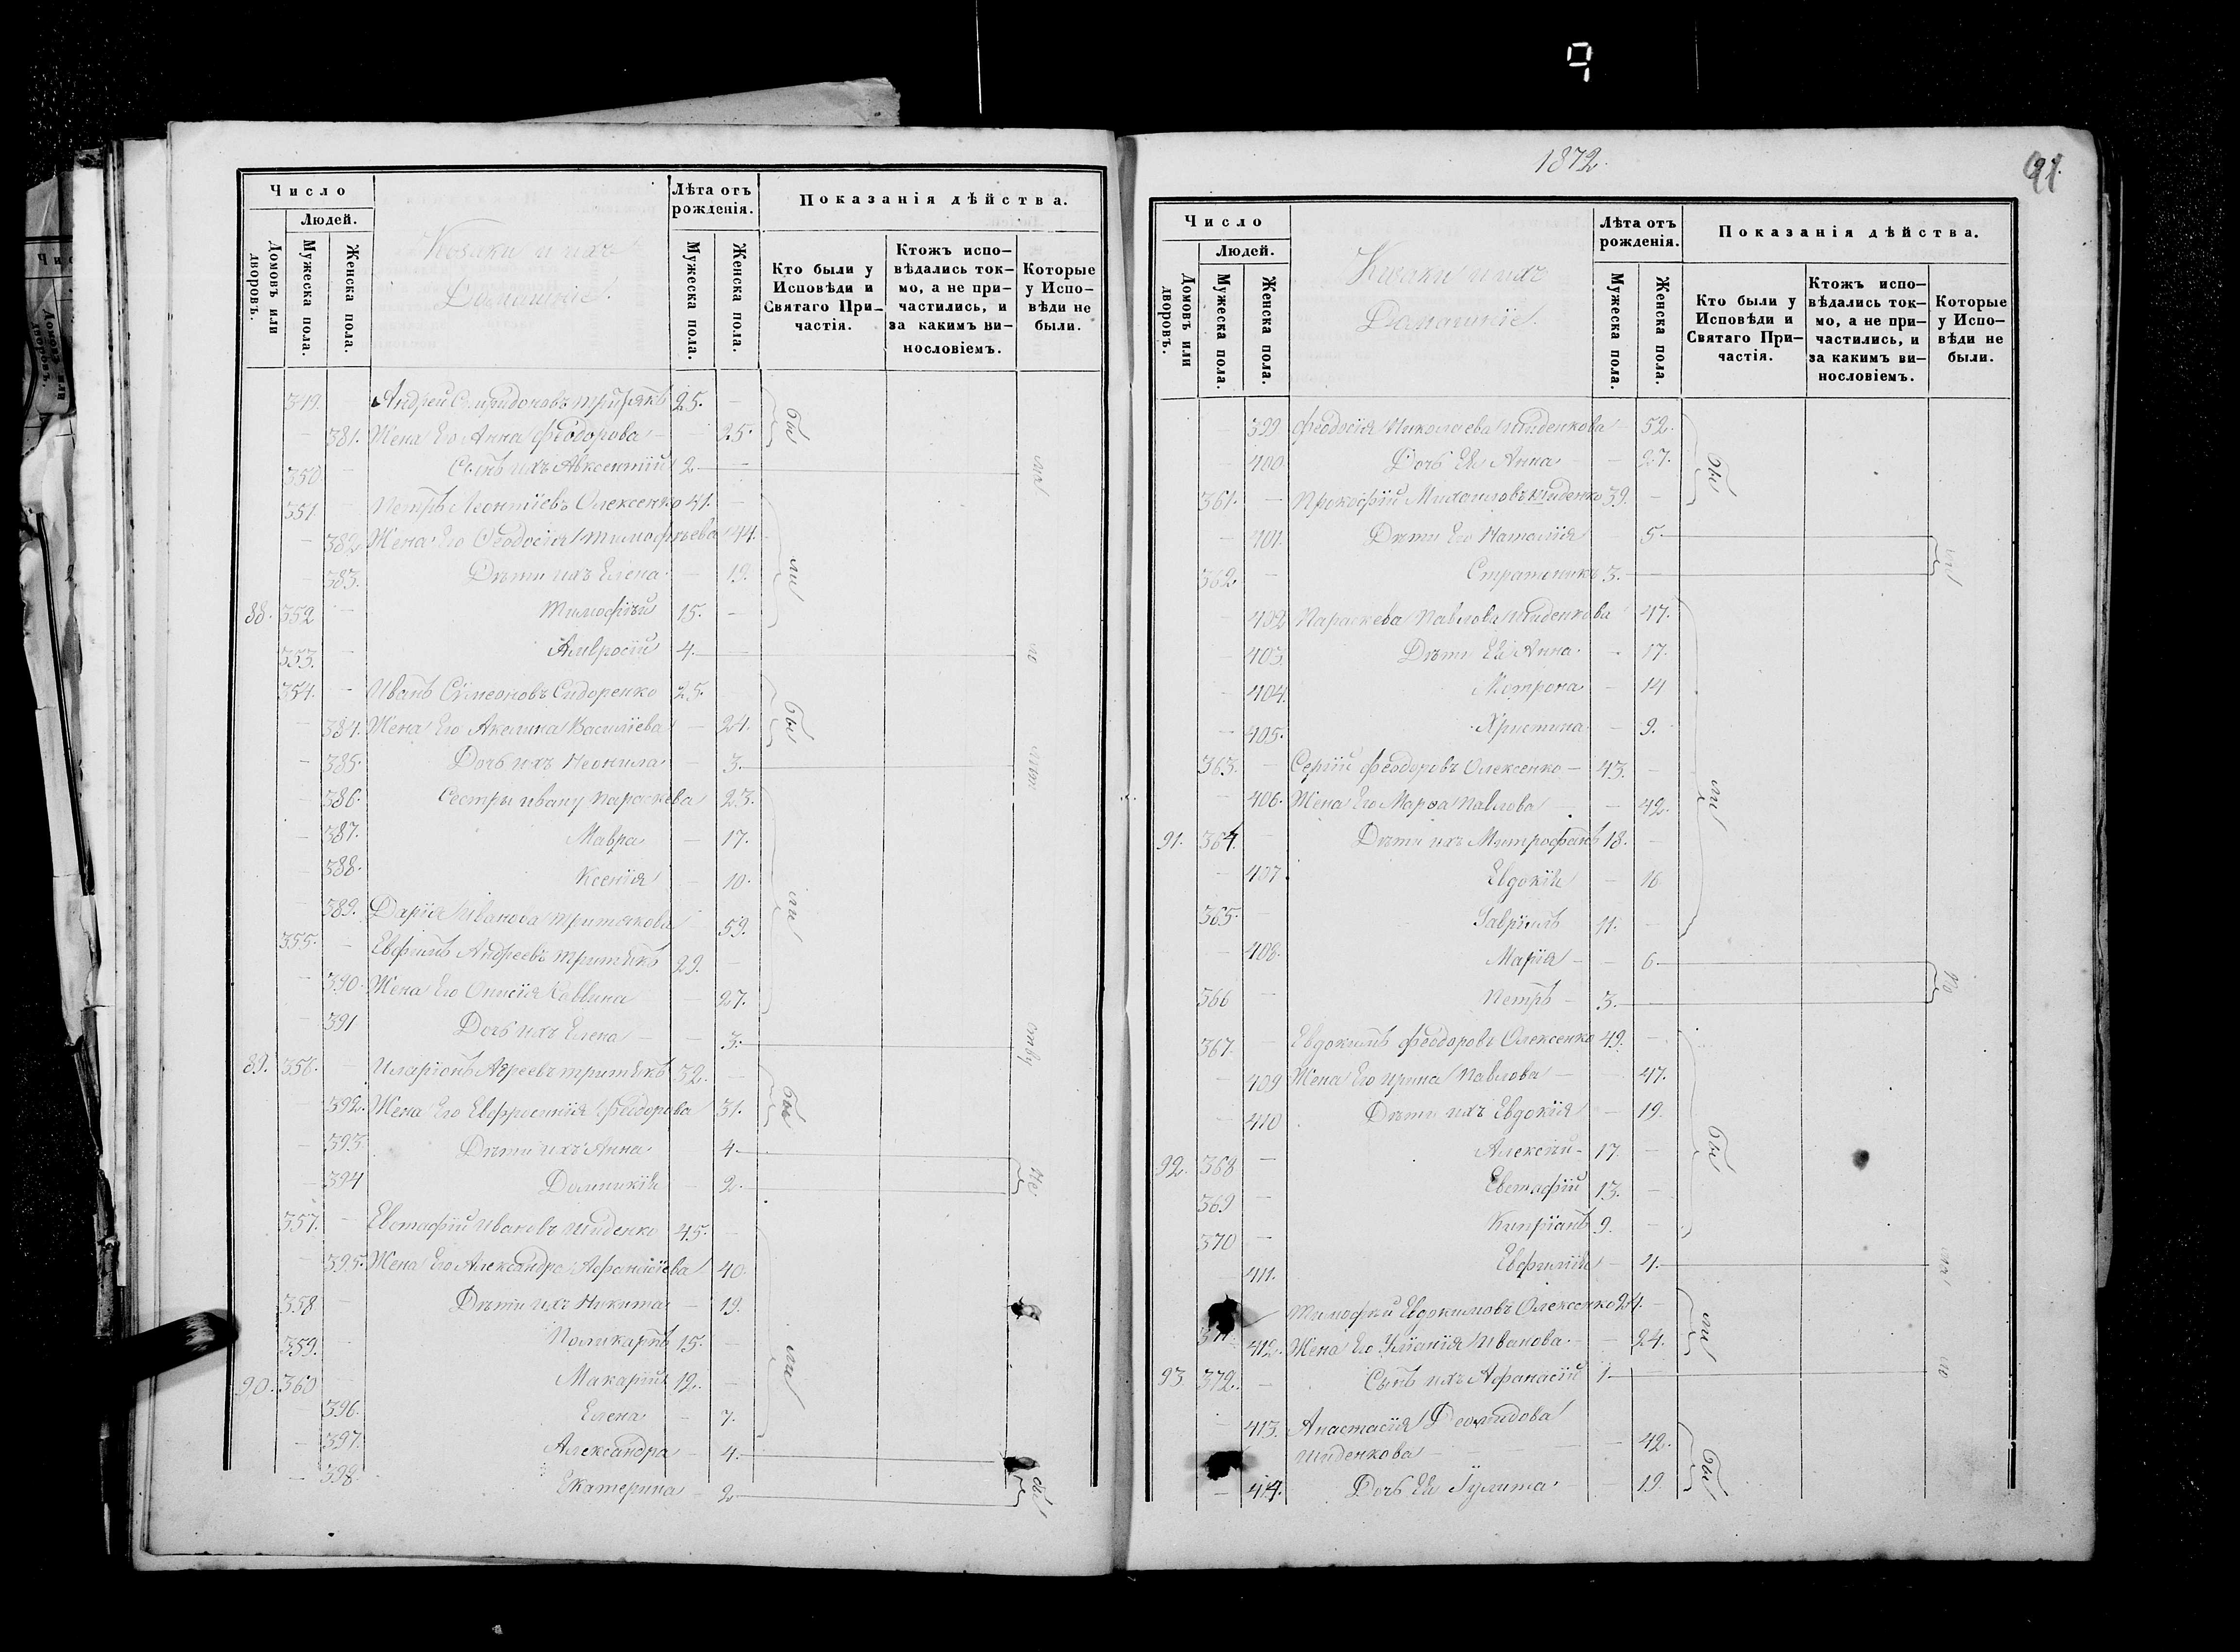 9
Число
Людей.
Домовъ или дворовъ.
Мужеска пола.
Женска пола.
Козаки и ихъ
Домашніе.
Лѣта отъ рожденія.
Мужеска пола.
Женска пола.
Показанія дѣйства.
Кто были у Исповѣди и Святаго Причастія.
Ктожъ исповѣдались токмо, а не причастились, и за какимъ винословіемъ.
Которые у Исповѣди не были.
349. 25.
381. Жена Его Анна Феодорова 25.
350. Сынъ ихъ Авксентій 2
351. Петръ Леонтіевъ Олексенко 41.
382 Жена Его Феодосія Тимофѣева 44.
383. Дѣти ихъ Елена 19.
88. 352 Тимофѣй 15.
353. Амвросій 4.
354. Иванъ Сѵмеоновъ Сидоренко 25.
384. Жена Его Акелина Василіева 24.
385. Дочь ихъ Неонила 3.
386. Сестры Ивану Параскева 23.
387. Мавра 17.
388. Ксенія 10.
389. Дарія Иванова 59.
355. Евфимъ Андреевъ 29.
390. Жена Его 27.
391 Дочь ихъ Елена 3.
89. 356. Иларіонъ 32.
392. Жена Его Евфросинія Феодорова 31.
393 Дѣти ихъ Анна 4
394 Домникія 2
357. Евстафій Ивановъ Шиденко 45.
395. Жена Его Александра Афанасіева 40.
358 Дѣти ихъ Никита 19.
359. Поликарпъ 15.
90. 360 Макарій 12.
396. Елена 7.
397. Александра 4.
398. Екатерина 2
1872.
91.
Число
Людей.
Домовъ или дворовъ.
Мужеска пола.
Женска пола.
Козаки и ихъ
Домашніе.
Лѣта отъ рожденія.
Мужеска пола.
Женска пола.
Показанія дѣйства.
Кто были у Исповѣди и Святаго Причастія.
Ктожъ исповѣдались токмо, а не причастились, и за какимъ винословіемъ.
Которые у Исповѣди не были.
399 Феодосія Николаева Шиденкова 52.
400 Дочь Ея Анна 27.
361. Прокофій Михаиловъ Шиденко 39.
401. Дѣти Его Наталія 5.
362. Стратоникъ 3.
402 Параскева Павлова Шиденкова 47.
403. Дѣти Ея Анна 17.
404. Мотрона 14
405. Христина 9.
363. Сергій Феодоровъ Олексенко 43.
406. Жена Его Марѳа Павлова 42.
91. 364. Дѣти ихъ Митрофанъ 18.
407 Евдокія 16
365. Гавріилъ 11.
408. Марія 6.
366 Петръ 3.
367. Евдокимъ Феодоровъ Олексенко 49.
409 Жена Его Ирина Павлова 47.
410 Дѣти ихъ Евдокія 19.
92. 368 Алексѣй 17.
369 Евстафій 13.
370 Кипріанъ 9.
411. Евфимія 4.
Тимофѣй Евдокимовъ Олексенко 24.
371. 412. Жена Его Уліанія Иванова 24.
93. 372. Сынъ ихъ Афанасій 1
413. Анастасія
Шиденкова 42.
414. Дочь Ея Іулита 19.